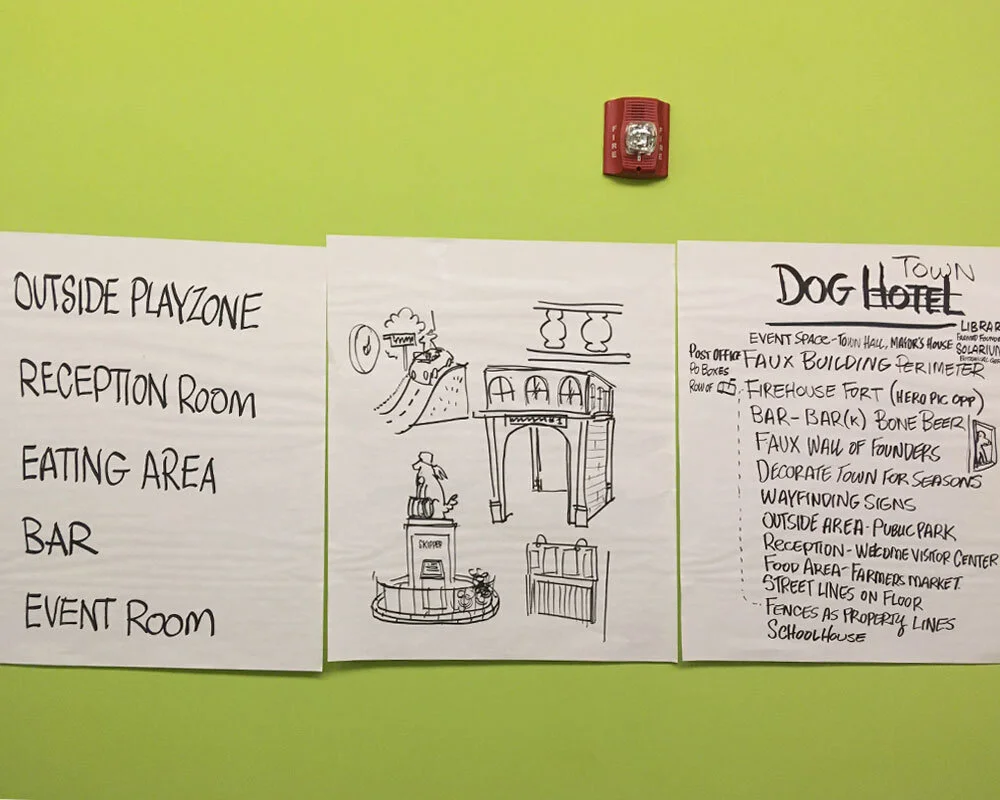 FIRE
FIRE
OUTSIDE PLAYZONE
RECEPTION ROOM
EATING AREA
BAR
EVENT ROOM
SKIPPER
TOWN
DOG HOTEL
LIBRAR
FOUN
SOLARIUM
BOTANICAL GAR
EVENT SPACE-TOWN HALL, MAYOR'S HOUSE
POST OFFICE
PO BOXES
ROW OF
FAUX BUILDING PERIMETER
FIREHOUSE FORT (HERO PIC OPP)
BAR-BAR(K) BONE BEER
FAUX WALL OF FOUNDERS
DECORATE TOWN FOR SEASONS
WAYFINDING SIGNS
OUTSIDE AREA-PUBLIC PARK
RECEPTION-WELCOME VISITOR CENTER
FOOD AREA-FARMERS MARKET
STREET LINES ON FLOOR
FENCES AS PROPERTY LINES
SCHOOLHOUSE